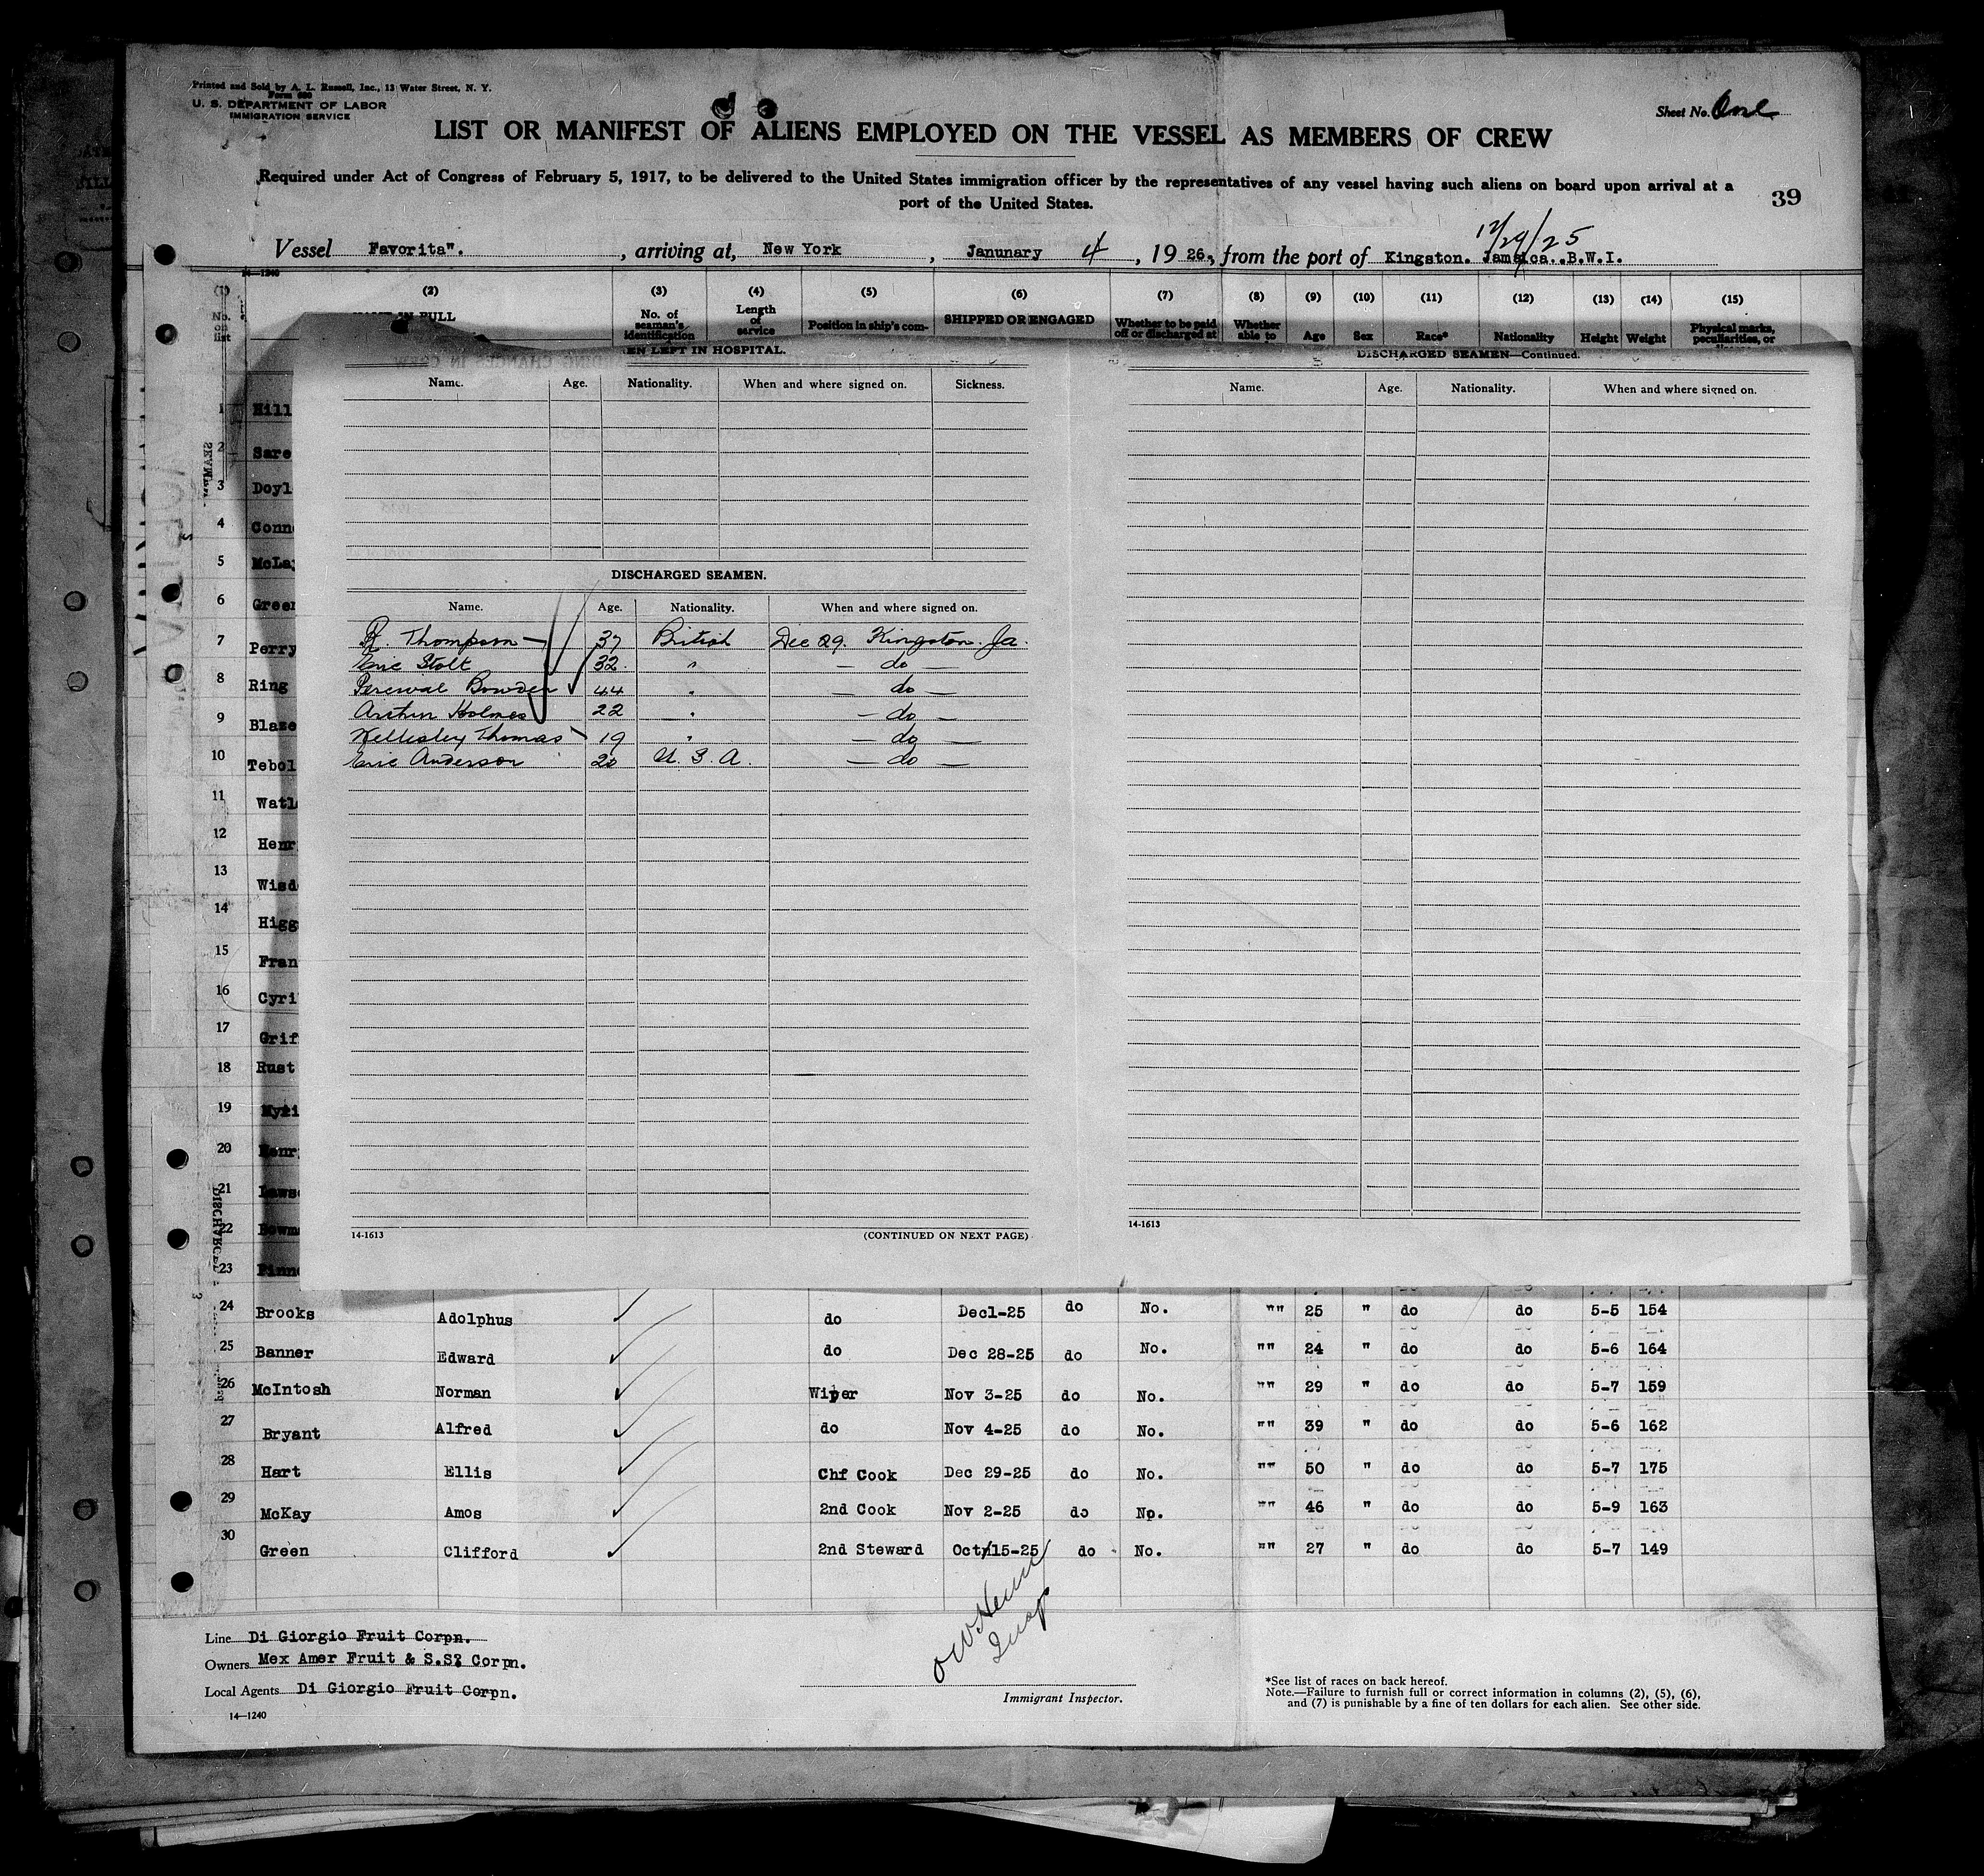 Printed and Sold by A. L. Russell, Inc., 13 Water Street, N. Y.
Form 680
U. S. DEPARTMENT OF LABOR
IMMIGRATION SERVICE
Sheet No. One
LIST OR MANIFEST OF ALIENS EMPLOYED ON THE VESSEL AS MEMBERS OF CREW
Required under Act of Congress of February 5, 1917, to be delivered to the United States immigration officer by the representatives of any vessel having such aliens on board upon arrival at a
port of the United States.
39
12/29/25
Vessel Favorita". , arriving at, New York , Janunary 4 , 19 26, from the port of Kingston. Jamaica..B.W.I.
14-1240
(1) (2) (3) (4) (5) (6) (7) (8) (9) (10) (11) (12) (13) (14) (15)
No. on list
FULL
No. of seaman's identification
Length of service
Position in ship's com-
SHIPPED OR ENGAGED
Whether to be paid off or discharged at
Whether able to
Age Sex Race* Nationality Height Weight
Physical marks, peculiarities, or
EN LEFT IN HOSPITAL.
Name. Age. Nationality. When and where signed on. Sickness.
DISCHARGED SEAMEN.
Name. Age. Nationality. When and where signed on.
R. Thompson 37 British Dec 29. Kingston. Ja.
Eric Stolt 32. " — do —
Percival Bowden 44 " — do —
Arthur Holmes 22 " — do —
Wellesley Thomas 19 " — do —
Eric Anderson 20 U. S. A. — do —
14-1613 (CONTINUED ON NEXT PAGE)
DISCHARGED SEAMEN—Continued.
Name. Age. Nationality. When and where signed on.
14-1613
1 Hill
2 Sare
3 Doyl
4 Conn
5 McLa
6 Green
7 Perry
8 Ring
9 Blaze
10 Tebol
11 Watl
12 Henr
13 Wisd
14 Higg
15 Fran
16 Cyri
17 Grif
18 Rust
19
20 Henr
21 Laws
22 Bowm
23 Finn
24 Brooks Adolphus do Dec1-25 do No. "" 25 " do do 5-5 154
25 Banner Edward do Dec 28-25 do No. "" 24 " do do 5-6 164
26 McIntosh Norman Wiper Nov 3-25 do No. "" 29 " do do 5-7 159
27 Bryant Alfred do Nov 4-25 do No. "" 39 " do do 5-6 162
28 Hart Ellis Chf Cook Dec 29-25 do No. "" 50 " do do 5-7 175
29 McKay Amos 2nd Cook Nov 2-25 do No. "" 46 " do do 5-9 163
30 Green Clifford 2nd Steward Oct/15-25 do No. "" 27 " do do 5-7 149
Line Di Giorgio Fruit Corpn.
Owners Mex Amer Fruit & S.S? Corpn.
Local Agents Di Giorgio Fruit Corpn.
14—1240
Insp
Immigrant Inspector.
*See list of races on back hereof.
Note.—Failure to furnish full or correct information in columns (2), (5), (6),
and (7) is punishable by a fine of ten dollars for each alien. See other side.